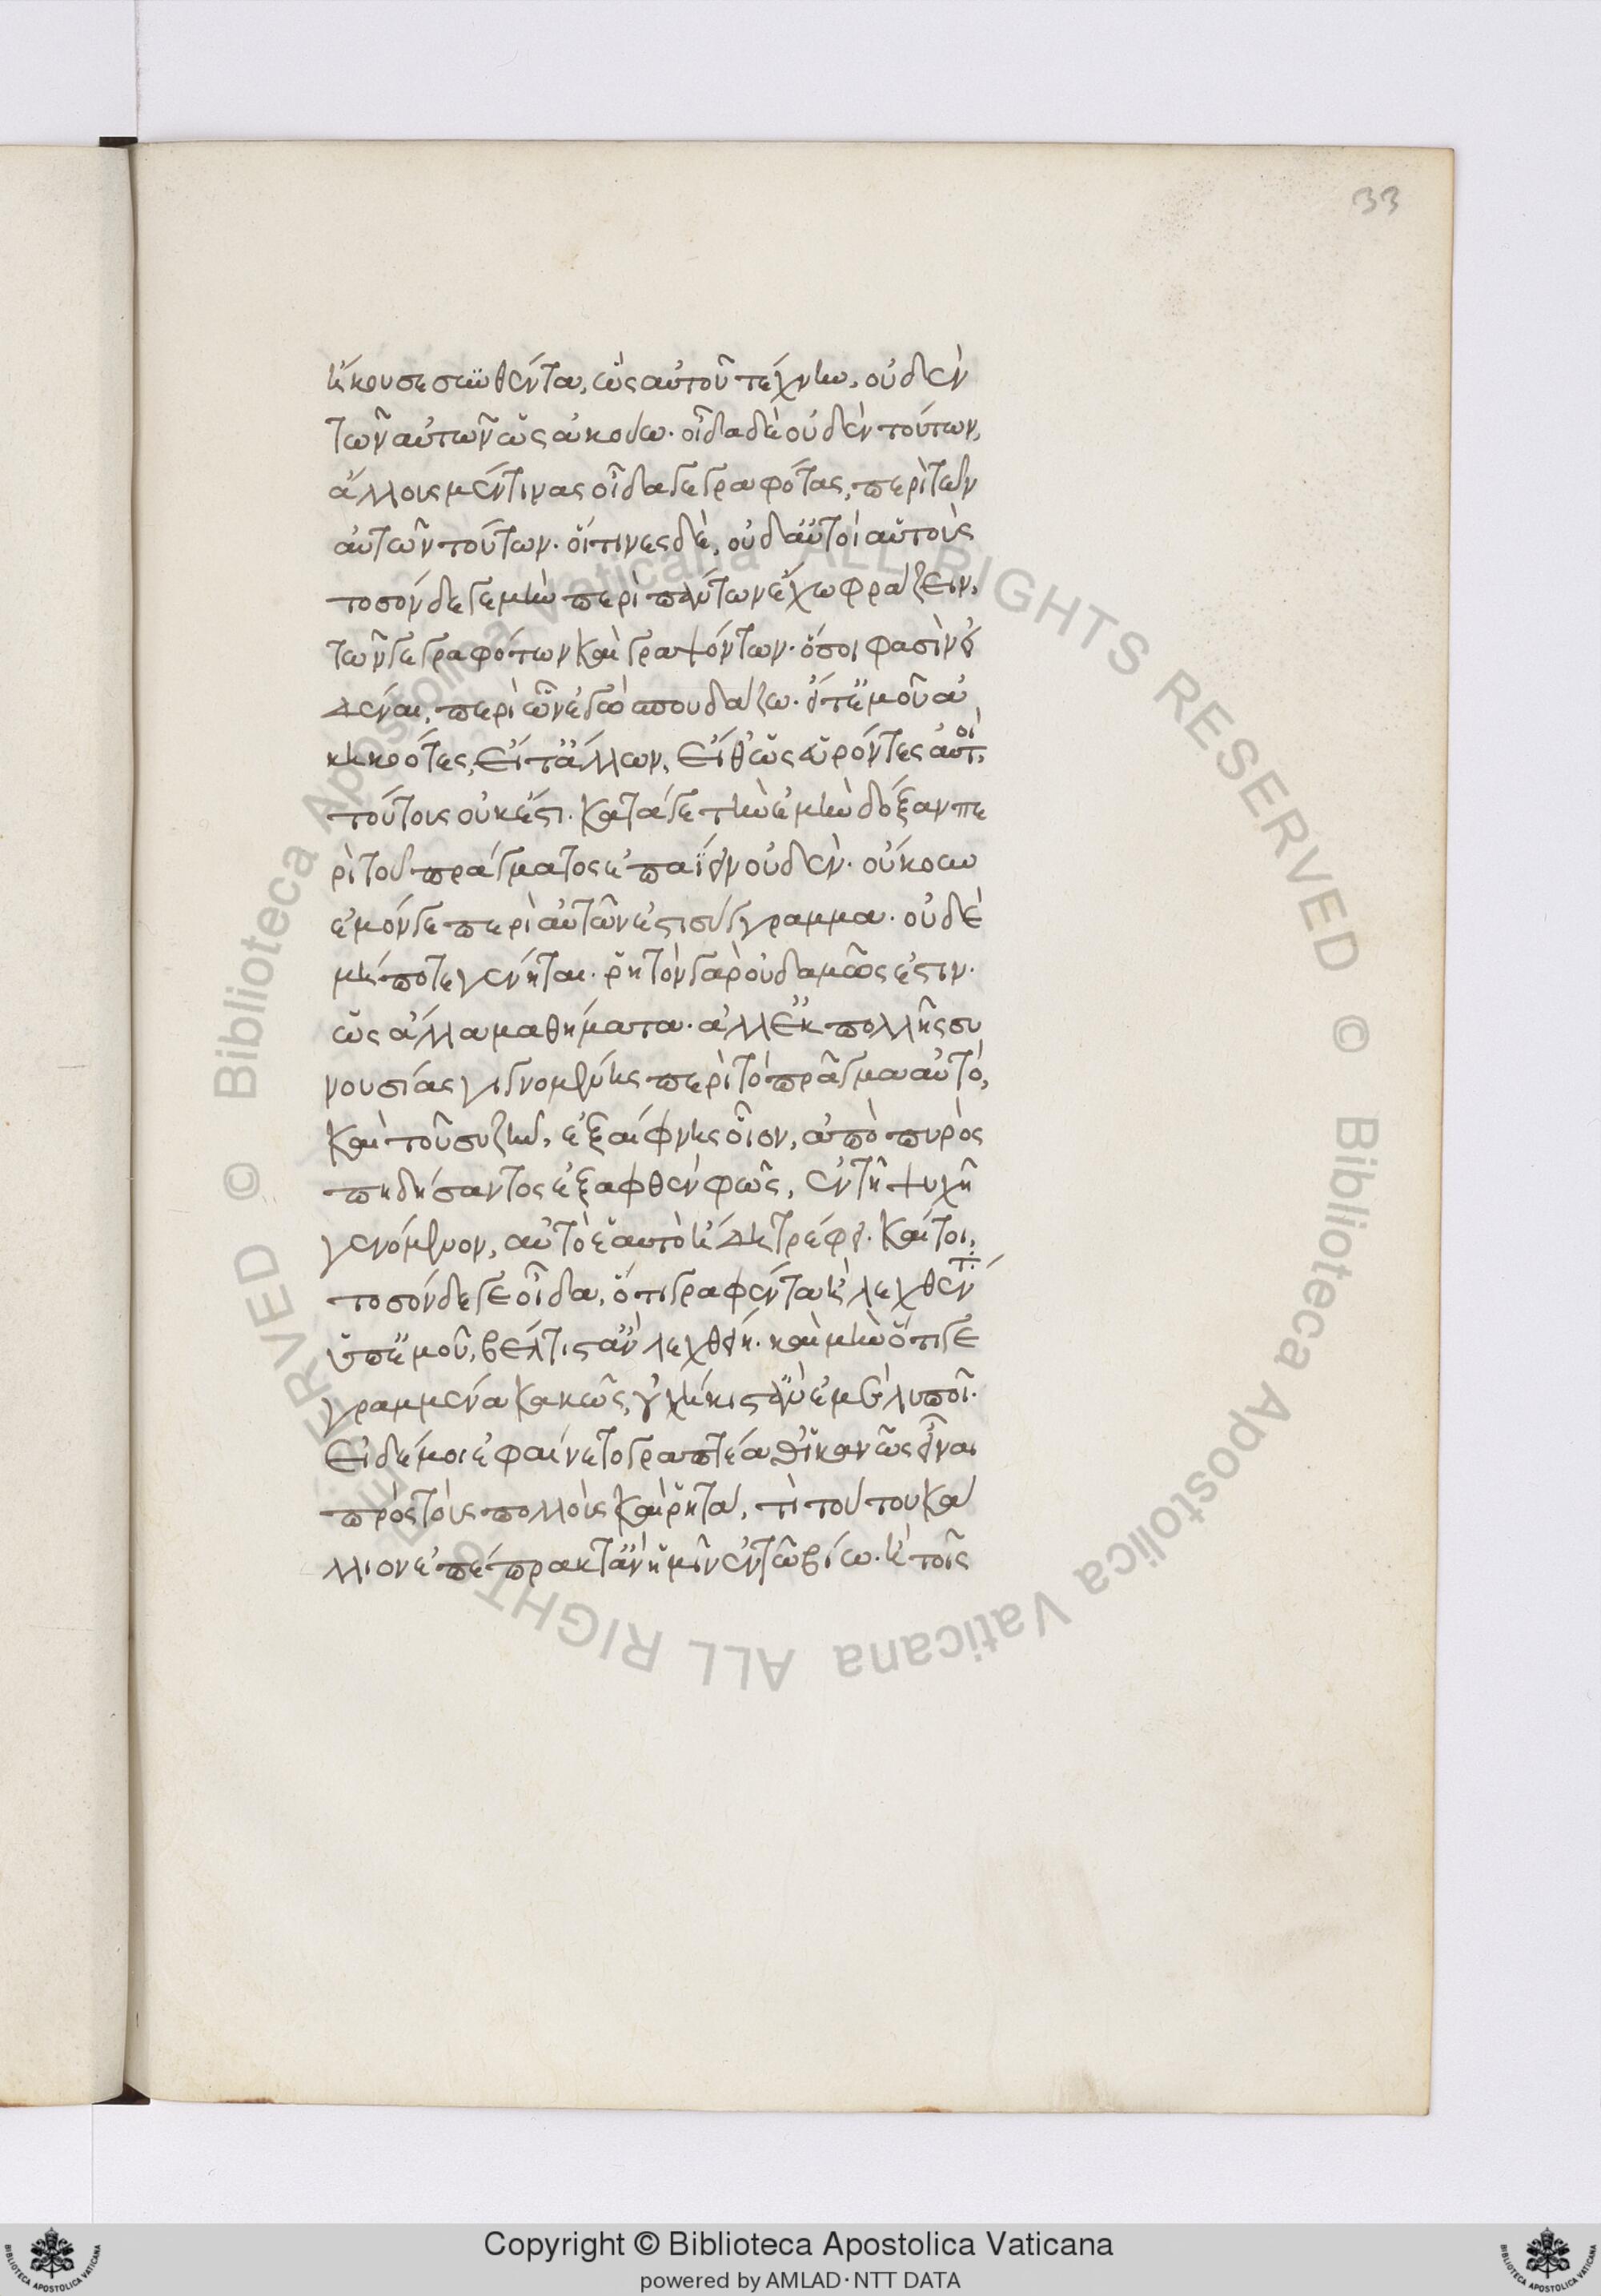 33
ἤκουσε συνθέντα, ὡς αὐτοῦ τέχνην, οὐδὲν
τῶν αὐτῶν ὡς ἀκούω. οἶδα δὲ οὐδὲν τούτων,
ἄλλους μέν τινας οἶδα γεγραφότας, περὶ τῶν
αὐτῶν τούτων. οἵτινες δὲ, οὐδ' αὐτοὶ αὑτοὺς
τοσόνδε γε μὴν περὶ πάντων ἔχω φράζειν,
τῶν γεγραφότων καὶ γραψόντων. ὅσοι φασὶν εἰ
δέναι, περὶ ὧν ἐγὼ σπουδάζω. εἴτ' ἐμοῦ ἀ
κηκοότες, εἴτ' ἄλλων, εἴθ' ὡς εὑρόντες αὐτοὶ,
τούτοις οὐκ ἔστι. κατά γε τὴν ἐμὴν δόξαν πε
ρὶ τοῦ πράγματος ἐπαΐειν οὐδέν. οὔκουν
ἐμόν γε περὶ αὐτῶν ἐστι σύγγραμμα. οὐδὲ
μή ποτε γένηται. ῥητὸν γὰρ οὐδαμῶς ἐστιν.
ὡς ἄλλα μαθήματα. ἀλλ' ἐκ πολλῆς συ
νουσίας γιγνομένης περὶ τὸ πρᾶγμα αὐτό,
καὶ τοῦ συζῆν, ἐξαίφνης οἷον, ἀπὸ πυρὸς
πηδήσαντος ἐξαφθὲν φῶς, ἐν τῇ ψυχῇ
γενόμενον, αὐτὸ ἑαυτὸ ἤδη τρέφει. καίτοι,
τοσόνδε γε οἶδα, ὅτι γραφέντα ἢ λεχθέντα
ὑπ' ἐμοῦ, βέλτιστ' ἂν λεχθείη. καὶ μὴν ὅτι γε
γραμμένα κακῶς, οὐχ ἥκιστ' ἂν ἐμὲ λυποῖ.
Εἰ δέ μοι ἐφαίνετο γραπτέα θ' ἱκανῶς εἶναι
πρὸς τοὺς πολλοὺς καὶ ῥητά, τί τούτου κάλ
λιον ἐπέπρακτ' ἂν ἡμῖν ἐν τῷ βίῳ. ἢ τοῖς
© Biblioteca Apostolica Vaticana ALL RIGHTS RESERVED © Biblioteca Apostolica Vaticana ALL RIGHTS RESERVED
Copyright © Biblioteca Apostolica Vaticana
powered by AMLAD·NTT DATA
BIBLIOTECA APOSTOLICA VATICANA
BIBLIOTECA APOSTOLICA VATICANA